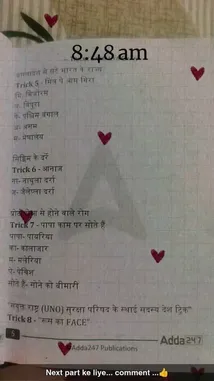 8:48am
बांग्लादेश से सटे भारत के राज्य
Trick 5 - मित्र पे आम मिरा
मि- मिजोरम
त्र- त्रिपुरा
प- पश्चिम बंगाल
आ- असम
म- मेघालय
सिक्किम के दर्रे
Trick 6 - अनाज
ना- नाथूला दर्रा
ज- जेलेप्ला दर्रा
से होने वाले रोग
Trick 7 - पापा काम पर सोते हैं
पापा- पायरिया
का- कालाजार
म- मलेरिया
प- पेचिश
सोते हैं- सोने की बीमारी
"संयुक्त राष्ट्र (UNO) सुरक्षा परिषद के स्थाई सदस्य देश ट्रिक"
Trick 8 - "रूस का FACE"
5
Adda247
Adda247 Publications
Next part ke liye... comment ...👍